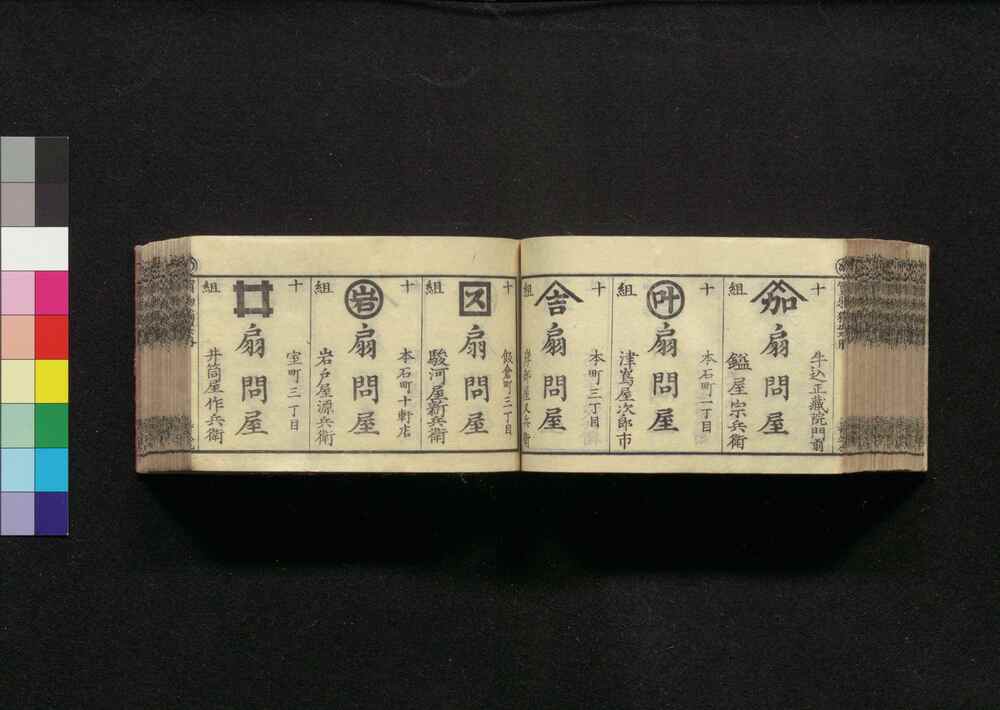 十
牛込正蔵院門前
加
扇問屋
組
鎰屋宗兵衛
十
本石町一丁目
叶
扇問屋
組
津嶌屋次郎市
十
本町三丁目
吉
扇問屋
組
屋又兵衛
十
飯倉町三丁目
ス
扇問屋
組
駿河屋新兵衛
十
本石町十軒店
岩
扇問屋
組
岩戸屋源兵衛
十
室町三丁目
扇問屋
組
井筒屋作兵衛